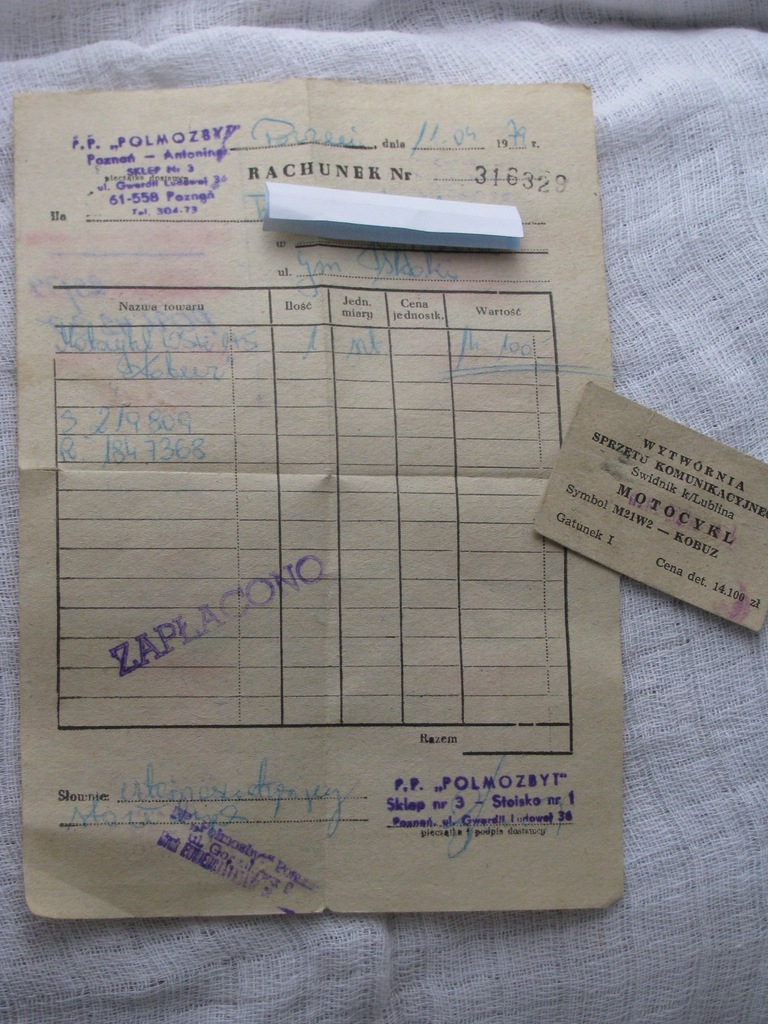 P.P. „POLMOZBYT"
Poznań — Antoninek
SKLEP Nr. 3
pieczątka dostawcy
ul. Gwardii Ludowej 36
61-558 Poznań
Tel. 304-73
dnia 11.04 1979 r.
RACHUNEK Nr 316329
Dla
w
ul. gm
Nazwa towaru Ilość Jedn. miary Cena jednostk. Wartość
Motocykl WSK 175 1 szt. 14.100
Kobuz
S 219809
R 1847368
ZAPŁACONO
Razem
Słownie: czternaście tysięcy
sto zł
P.P. „POLMOZBYT"
Sklep nr 3 Stoisko nr 1
Poznań, ul. Gwardii Ludowej 36
pieczątka i podpis dostawcy
WYTWÓRNIA
SPRZĘTU KOMUNIKACYJNEG
Świdnik k/Lublina
MOTOCYKL
Symbol M21W2 — KOBUZ
Gatunek I
Cena det. 14.100 zł